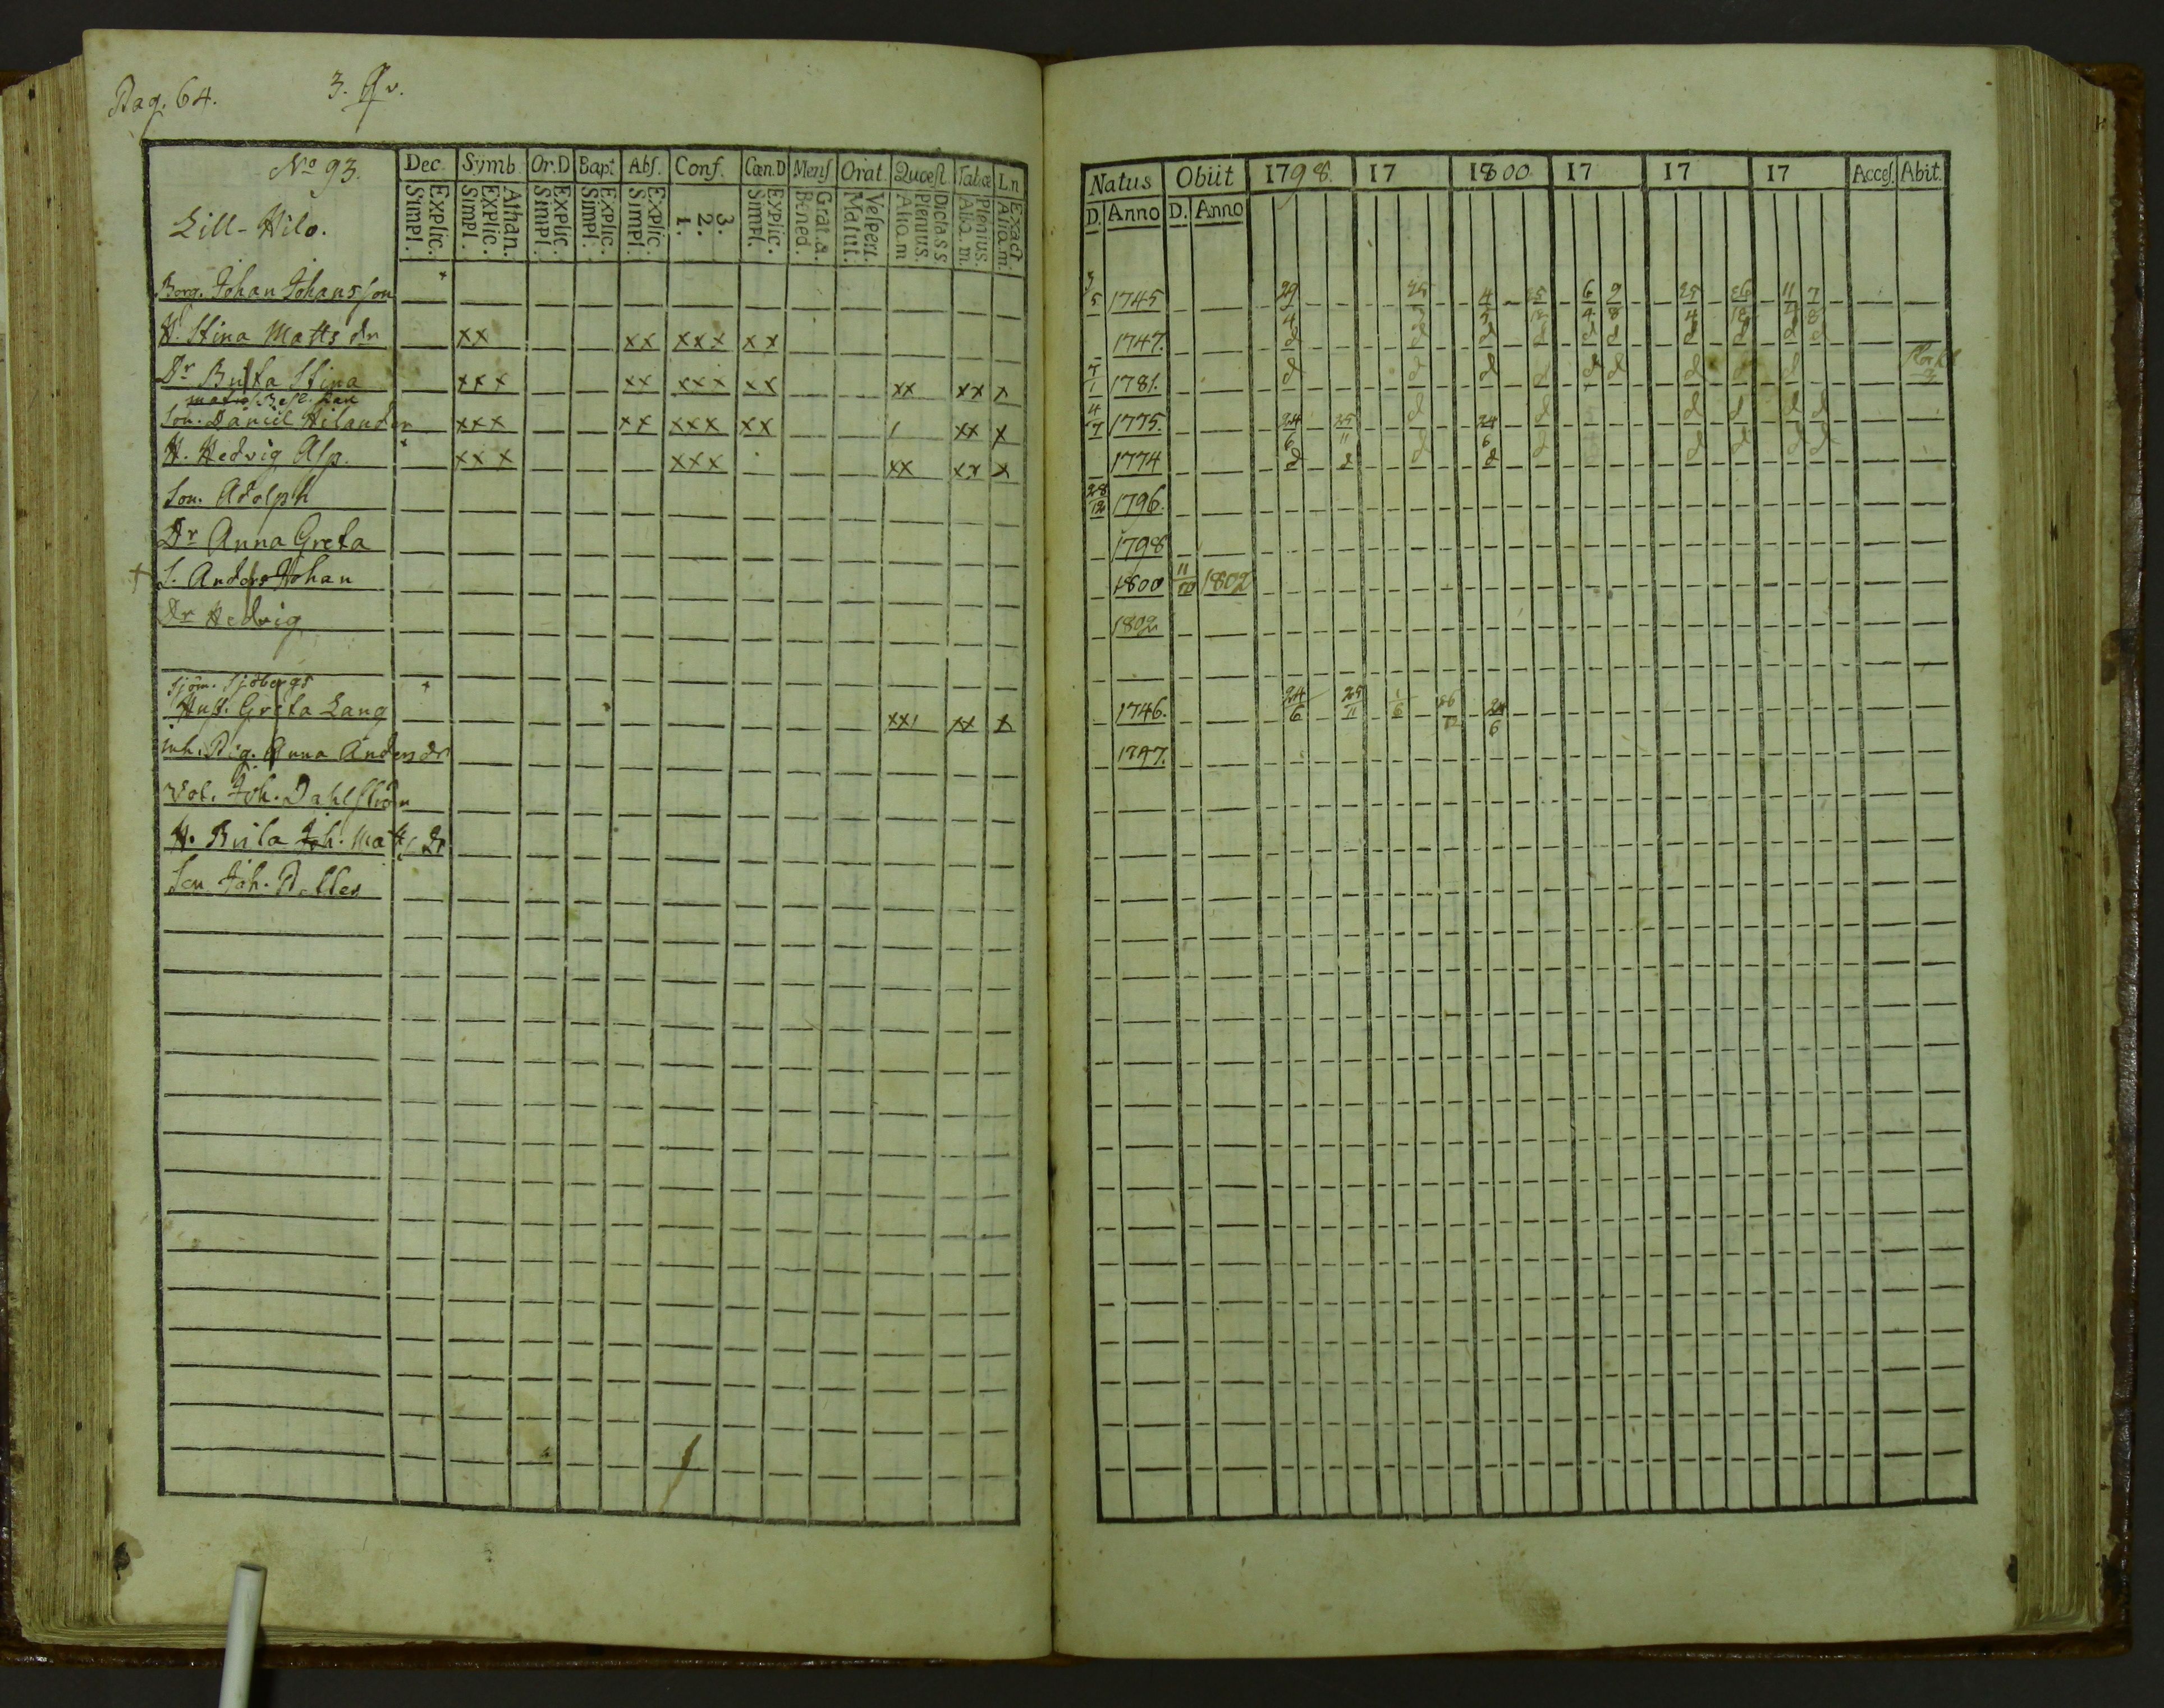 Pag. 64. 3. Qv.
No 93.
Lill-Hilo.
Dec. Symb. Or.D Bapt Abs. Conf. Cœn.D Mens Orat. Quœst Tabœ L.n
Explic. Simpl. Athan. Explic. Simpl. Explic. Simpl. Explic. Simpl. Explic. Simpl. 3. 2. 1. Explic. Simpl. Grat.a. Bened. Vespert. Matut. Dicta S S Plenius. Aliq.m Plenius. Aliq.m. Exact Aliq.m.
Borg. Johan Johansson
H. Stina Matts dr xx xx xxx xx
Dr Brita Stina xxx xx xxx xx xx xx x
Son. Daniel Hilander xxx xx xxx xx / xx x
H. Hedvig Alp. xxx xxx xx xx x
Son. Adolph
Dr Anna Greta
+ S. Anders Johan
Dr Hedvig
Sjöm. Sjöbergs
Hust. Greta Lang xx/ xx x
inh. Pig. Anna Anders dr
Vol. Joh. Dahlström
H. Brita Joh. Matts dr
Son Joh.
Natus Obiit 1798. 17 1800 17 17 17 Acces. Abit.
D. Anno D. Anno
3/5 1745 29/4 4/5 25/12 6/4 9/8 25/4 26/12 11/4 7/8
1747. d d d d d d d d d d
7/1 1781. d d d d d d d d d
4/7 1775. 24/6 25/11 d 24/6 d d d d d
1774 d d d d d d d d d
28/12 1796.
1798
1800 11/10 1802
1802
1746. 24/6 25/11 1/6 26/12 24/6
1747.